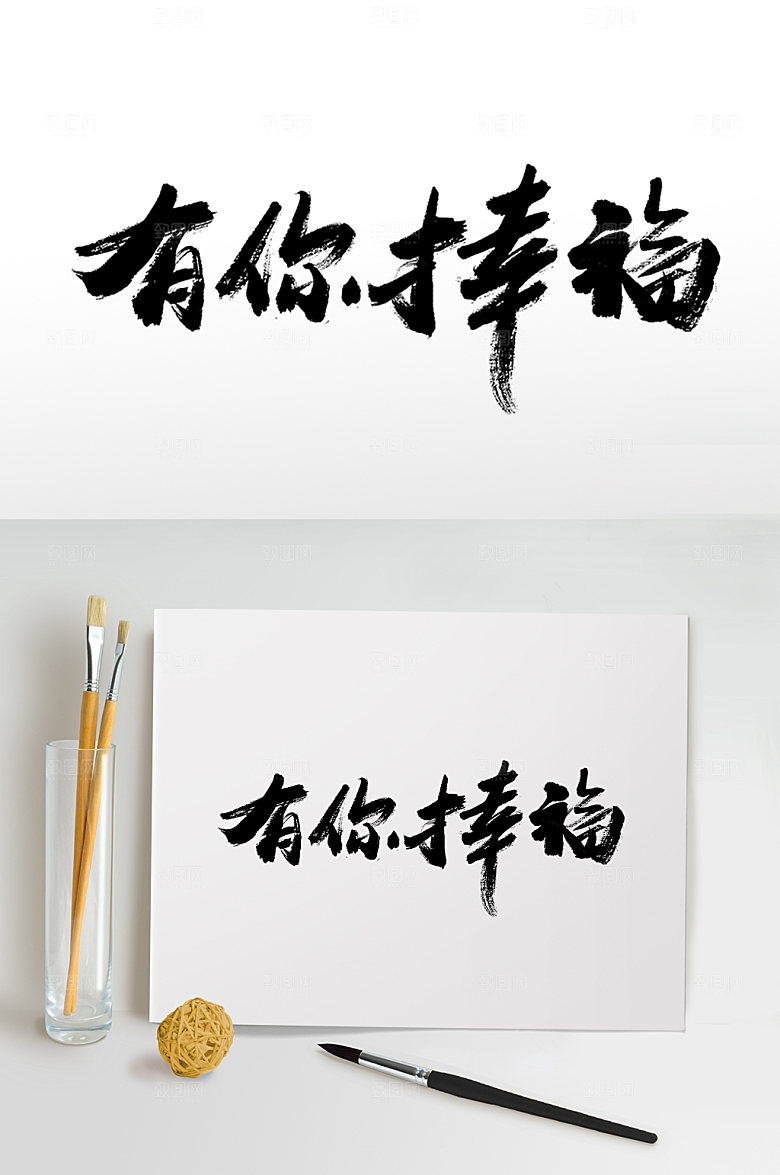 有你才幸福
有你才幸福